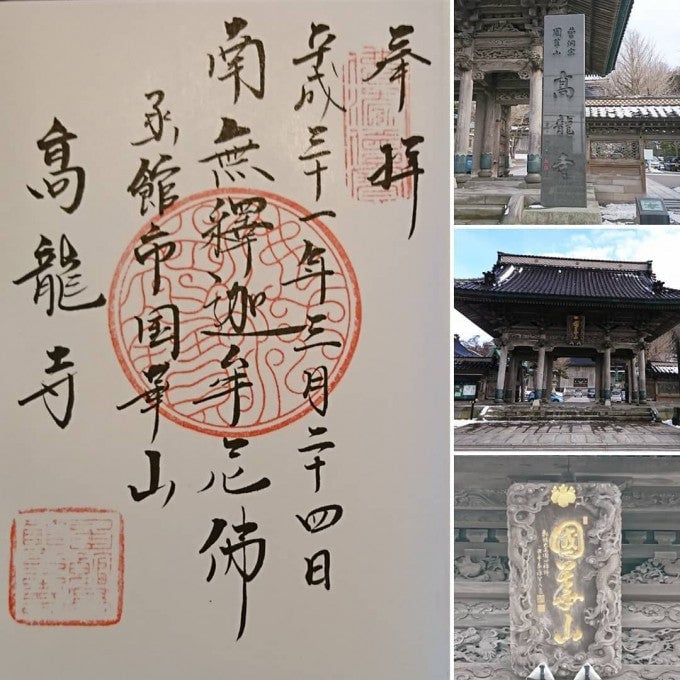 奉拝
平成三十一年三月二十四日
南無釋迦牟尼佛
函館市国華山
高龍寺
曹洞宗
國華山
高龍寺
國華山